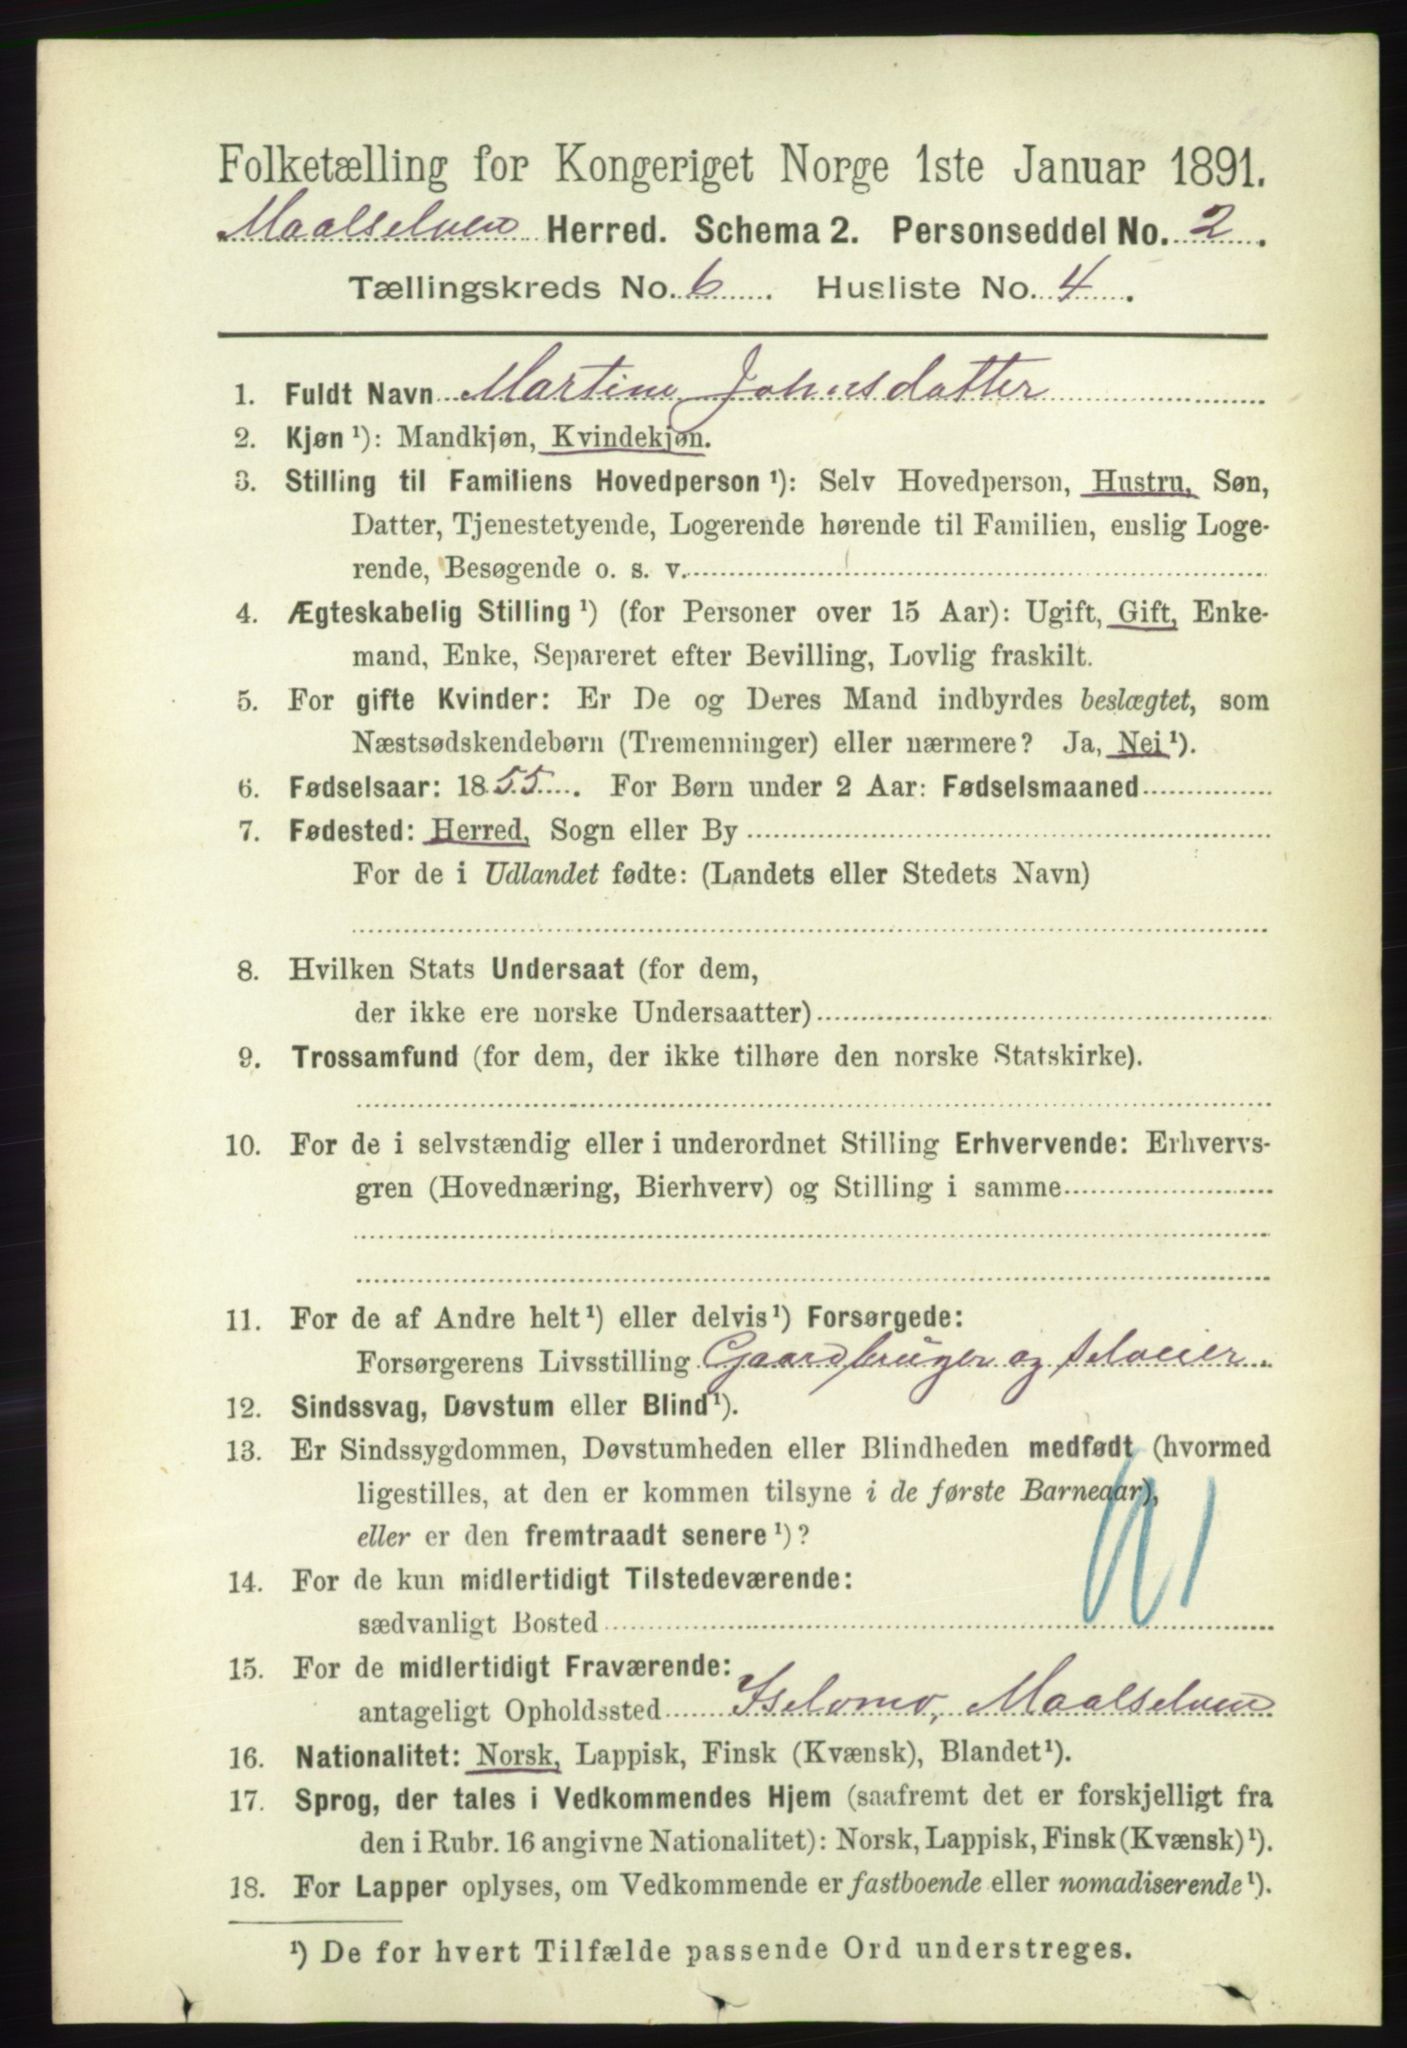 Folketælling for Kongeriget Norge 1ste Januar 1891.
Maalselven Herred. Schema 2. Personseddel No. 2.
Tællingskreds No. 6. Husliste No. 4.
1. Fuldt Navn Martine Johnsdatter
2. Kjøn ¹): Mandkjøn, Kvindekjøn.
3. Stilling til Familiens Hovedperson ¹): Selv Hovedperson, Hustru, Søn,
Datter, Tjenestetyende, Logerende hørende til Familien, enslig Loge-
rende, Besøgende o. s. v.
4. Ægteskabelig Stilling ¹) (for Personer over 15 Aar): Ugift, Gift, Enke-
mand, Enke, Separeret efter Bevilling, Lovlig fraskilt.
5. For gifte Kvinder: Er De og Deres Mand indbyrdes beslægtet, som
Næstsødskendebørn (Tremenninger) eller nærmere? Ja, Nei ¹).
6. Fødselsaar: 1855. For Børn under 2 Aar: Fødselsmaaned
7. Fødested: Herred, Sogn eller By
For de i Udlandet fødte: (Landets eller Stedets Navn)
8. Hvilken Stats Undersaat (for dem,
der ikke ere norske Undersaatter)
9. Trossamfund (for dem, der ikke tilhøre den norske Statskirke).
10. For de i selvstændig eller i underordnet Stilling Erhvervende: Erhvervs-
gren (Hovednæring, Bierhverv) og Stilling i samme
11. For de af Andre helt ¹) eller delvis ¹) Forsørgede:
Forsørgerens Livsstilling Gaardbruger og selveier.
12. Sindssvag, Døvstum eller Blind ¹).
13. Er Sindssygdommen, Døvstumheden eller Blindheden medfødt (hvormed
ligestilles, at den er kommen tilsyne i de første Barneaar),
eller er den fremtraadt senere ¹)?
14. For de kun midlertidigt Tilstedeværende:
sædvanligt Bosted
15. For de midlertidigt Fraværende:
antageligt Opholdssted Iselvmo, Maalselven
16. Nationalitet: Norsk, Lappisk, Finsk (Kvænsk), Blandet ¹).
17. Sprog, der tales i Vedkommendes Hjem (saafremt det er forskjelligt fra
den i Rubr. 16 angivne Nationalitet): Norsk, Lappisk, Finsk (Kvænsk) ¹).
18. For Lapper oplyses, om Vedkommende er fastboende eller nomadiserende ¹).
¹) De for hvert Tilfælde passende Ord understreges.